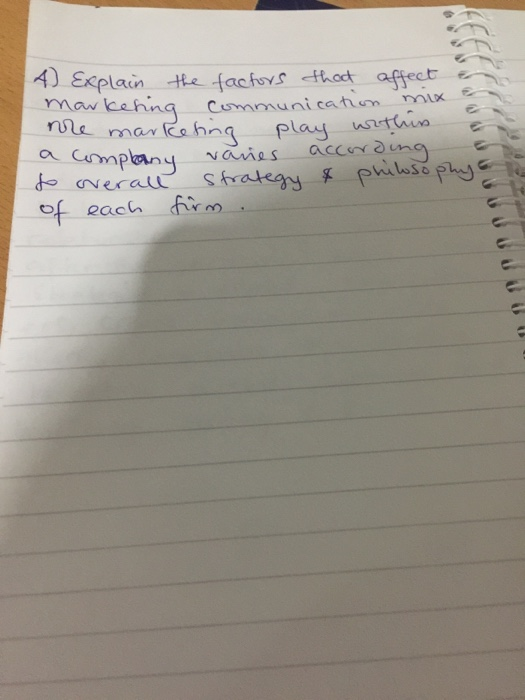 4) Explain the factors that affect
marketing communication mix
role marketing play within
a company varies according
to overall strategy & philosophy
of each firm.